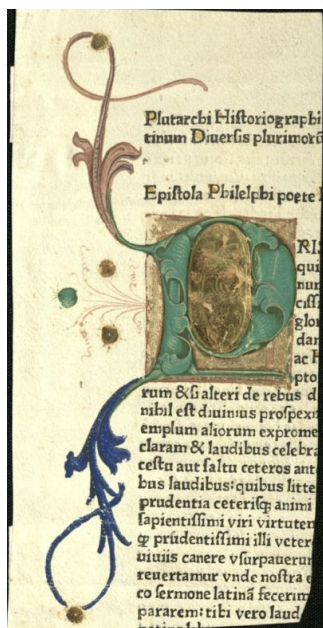 Plutarchi Historiographi
tinum Diuersis plurimorũ
Epistola Philelphi poete
P
RIS
qui
num
cissi
glor
dan
ac H
pto
rum & si alteri de rebus d
nihil est diuinius prospexi
emplum aliorum exprome
claram & laudibus celebra
cestu aut saltu ceteros ant
bus laudibus: quibus litte
prudentia ceterisq animi
sapientissimi viri virtutem
q prudentissimi illi veter
uiuiis canere vsurpauerun
reuertamur vnde nostra
co sermone latinã fecerim
pararem: tibi vero laud